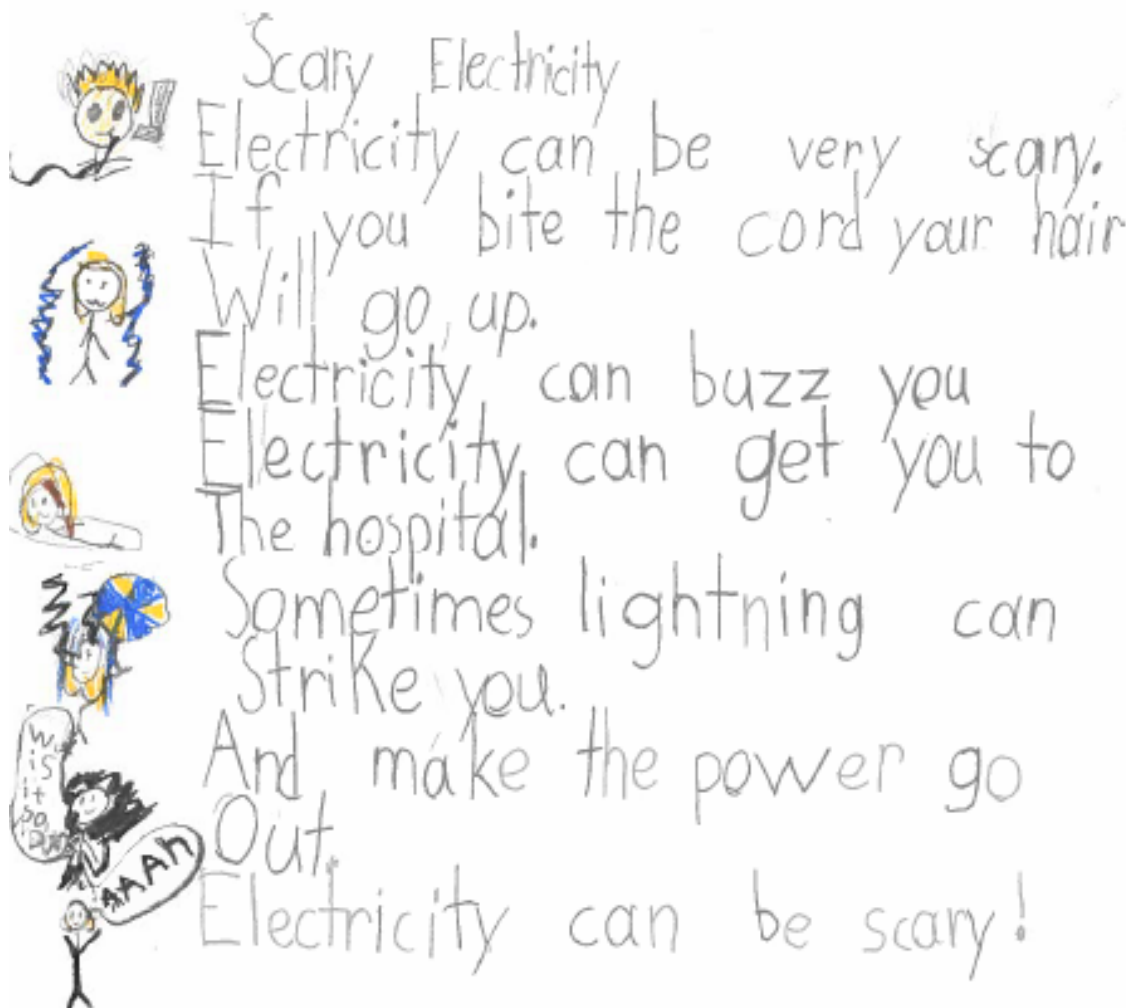 Scary Electricity
Electricity can be very scary.
If you bite the cord your hair
Will go up.
Electricity can buzz you
Electricity can get you to
The hospital.
Sometimes lightning can
Strike you.
And make the power go
Out.
Electricity can be scary!
is
it
so
AAAh